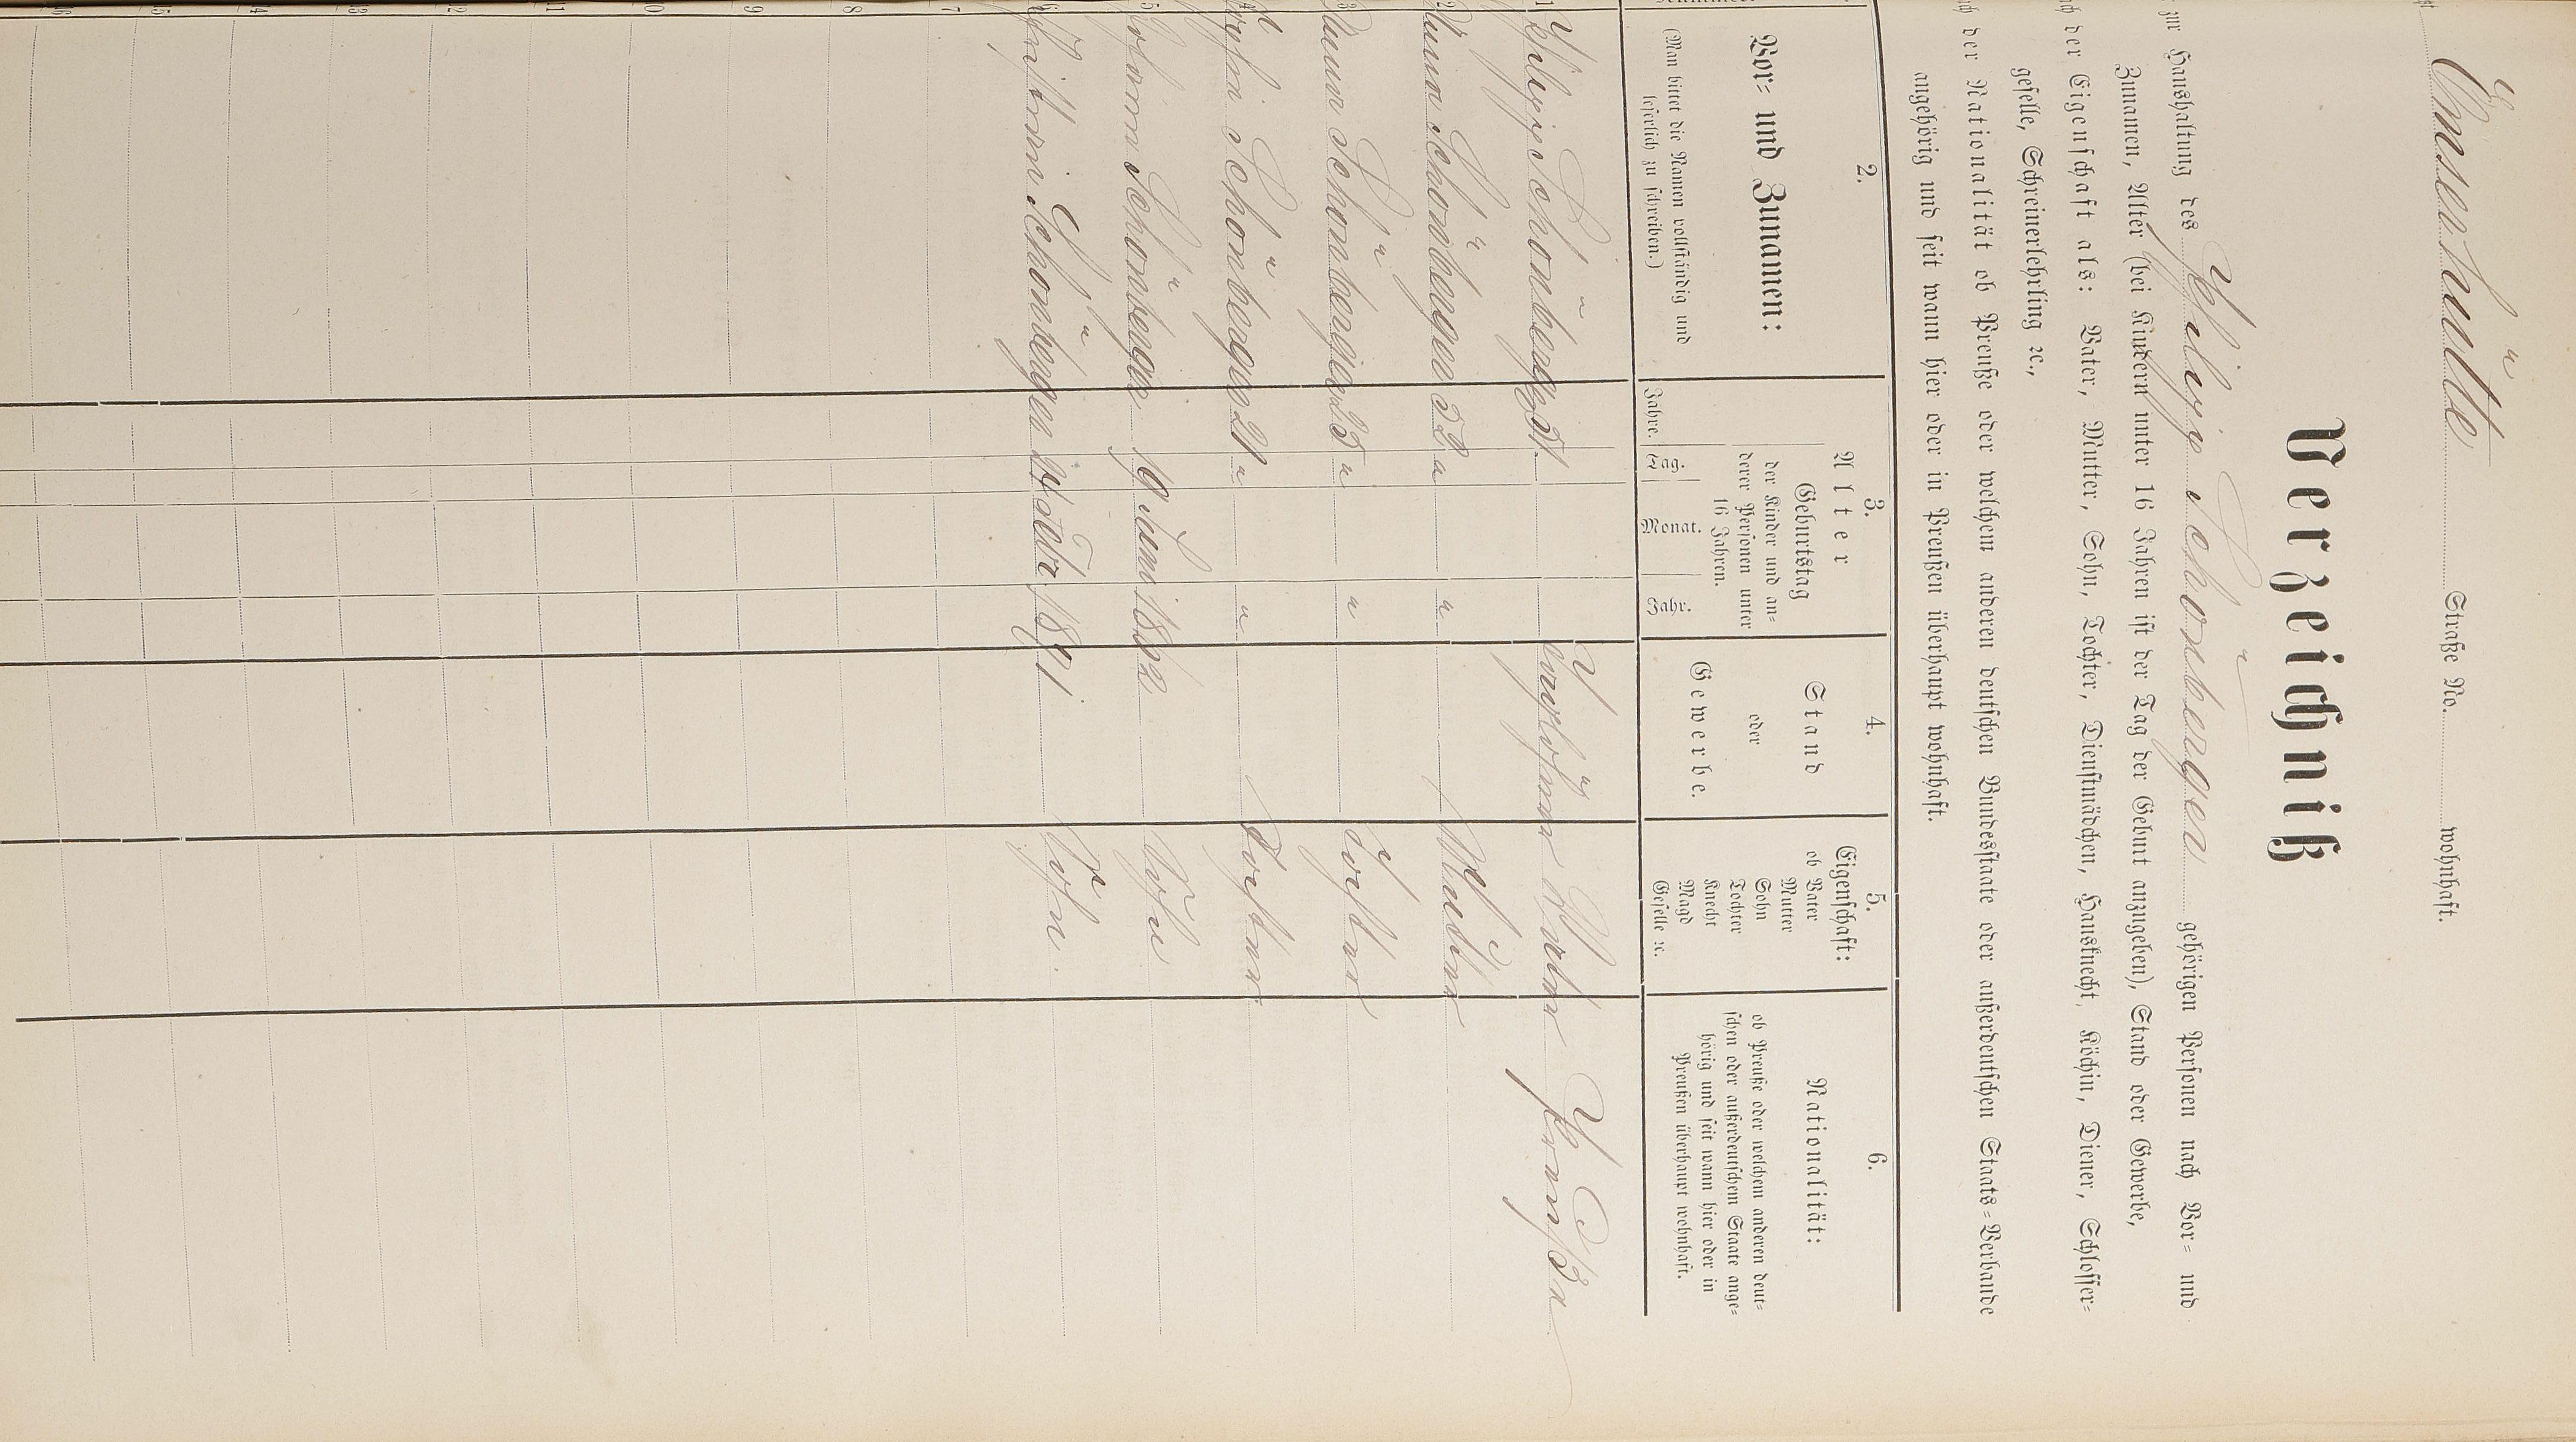 Emserhütte Straße No. wohnhaft.
Verzeichniß
zur Haushaltung des Philipp Schönberger gehörigen Personen nach Vor= und
Zunamen, Alter (bei Kindern unter 16 Jahren ist der Tag der Geburt anzugeben), Stand oder Gewerbe,
der Eigenschaft als: Vater, Mutter, Sohn, Tochter, Dienstmädchen, Hausknecht, Köchin, Diener, Schlosser=
geselle, Schreinerlehrling ꝛc.,
der Nationalität ob Preuße oder welchem anderen deutschen Bundesstaate oder außerdeutschen Staats=Verbande
angehörig und seit wann hier oder in Preußen überhaupt wohnhaft.
2. 3. 4. 5. 6.
Vor= und Zunamen:
(Man bittet die Namen vollständig und
leserlich zu schreiben.)
Alter
Geburtstag
der Kinder und an=
derer Personen unter
16 Jahren.
Jahre. Tag. Monat. Jahr.
Stand
oder
Gewerbe.
Eigenschaft:
ob Vater
Mutter
Sohn
Tochter
Knecht
Magd
Geselle ꝛc.
Nationalität:
ob Preuße oder welchem anderen deut=
schen oder außerdeutschem Staate ange=
hörig und seit wann hier oder in
Preußen überhaupt wohnhaft.
1 Philipp Schönberg 51. Vater Preuße
2 Anna Schönberger 52 " " Mutter
3 Anna Schönberger 25 " " Tochter
4 Sophie Schönberger 21 " " Tochter
5 Johann Schönberger 19 Juni 1882 Sohn
6 Schönberger 24 1891 Sohn
7
8
9
10
11
12
13
14
15
16